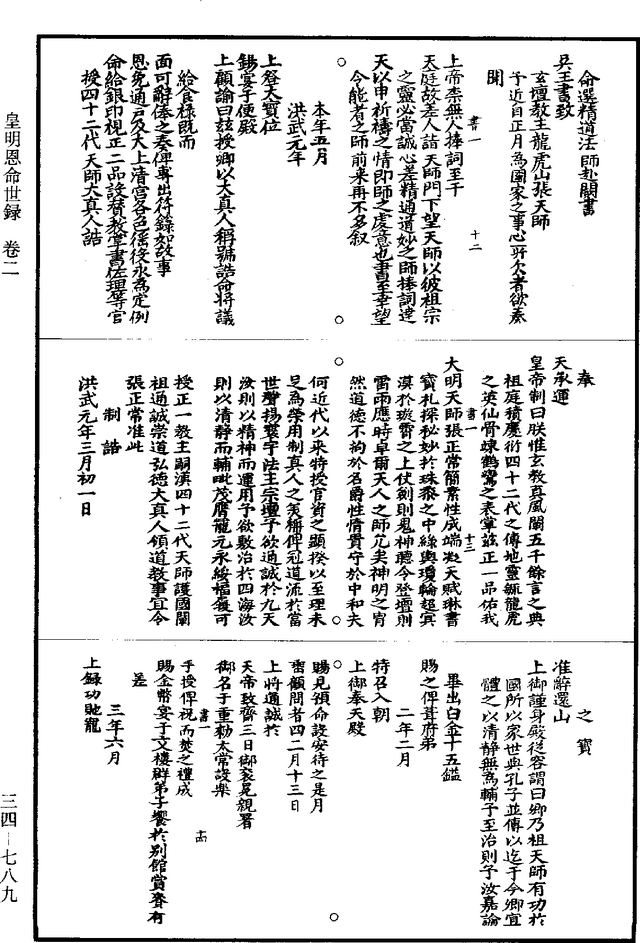 命選精道法師赴闕書
吳王書致
玄壇教主龍虎山張天師
予近自正月為國家之事心所欠者欲奏
聞
書一
十二
上帝柰無人捧詞至于
天庭故差人詣天師門下望天師以彼祖宗
之靈必當誠心差精通道妙之師捧詞達
天以申祈禱之情即師之處意也書至幸望
今能者之師前來再不多叙
本年五月
洪武元年
上登大寶位
錫宴于便殿
上顧諭曰茲授卿以大真人稱號誥命將議
給食樣既而
面可辭俸之奏俾專出符籙如故事
恩免通戶及大上清宮各色徭役永為定例
命給銀印視正二品設贊教掌書佐理等官
授四十二代天師大真人誥
奉
天承運
皇帝制曰朕惟玄教真風闡五千餘言之典
祖庭積慶衍四十二代之傳地靈毓龍虎
之英仙骨竦鶴鸞之表掌茲正一品佑我
書一
十三
大明天師張正常簡素性成端凝天賦琳書
寶札探秘妙於珠黍之中綠輿瓊輪超冥
漠於璇霄之上仗劍則鬼神聽令登壇則
雷雨應時卓爾天人之師允矣神明之胄
然道德不拘於名爵性情貴守於中和夫
何近代以來特授官資之顯揆以至理未
足為榮用制真人之美稱俾冠道流於當
世譽揚寰宇法主宗壇予欲通誠於九天
汝則以精神而運用予欲敷治於四海汝
則以清靜而輔毗茂膺寵元永綏福履可
授正一教主嗣漢四十二代天師護國闡
祖通誠崇道弘德大真人領道教事宜令
張正常准此
制誥
洪武元年三月初一日
之寶
准辭還山
上御謹身殿從容謂曰卿乃祖天師有功於
國所以家世與孔子並傳以迄于今卿宜
體之以清靜無為輔予至治則予汝嘉諭
畢出白金十五鎰
賜之俾葺府第
二年二月
特召入朝
上御奉天殿
賜見預命設安待之是月
畱顧問者四二月十三日
上將通誠於
天帝致齋三日御衮冕親署
御名于重勑太常設樂
手授俾視而焚之禮成
書一
十四
賜金幣宴于文樓群弟子饗於別館賞賚有
差
三年六月
上錄功貤寵
皇明恩命世録　卷二
三四—七八九